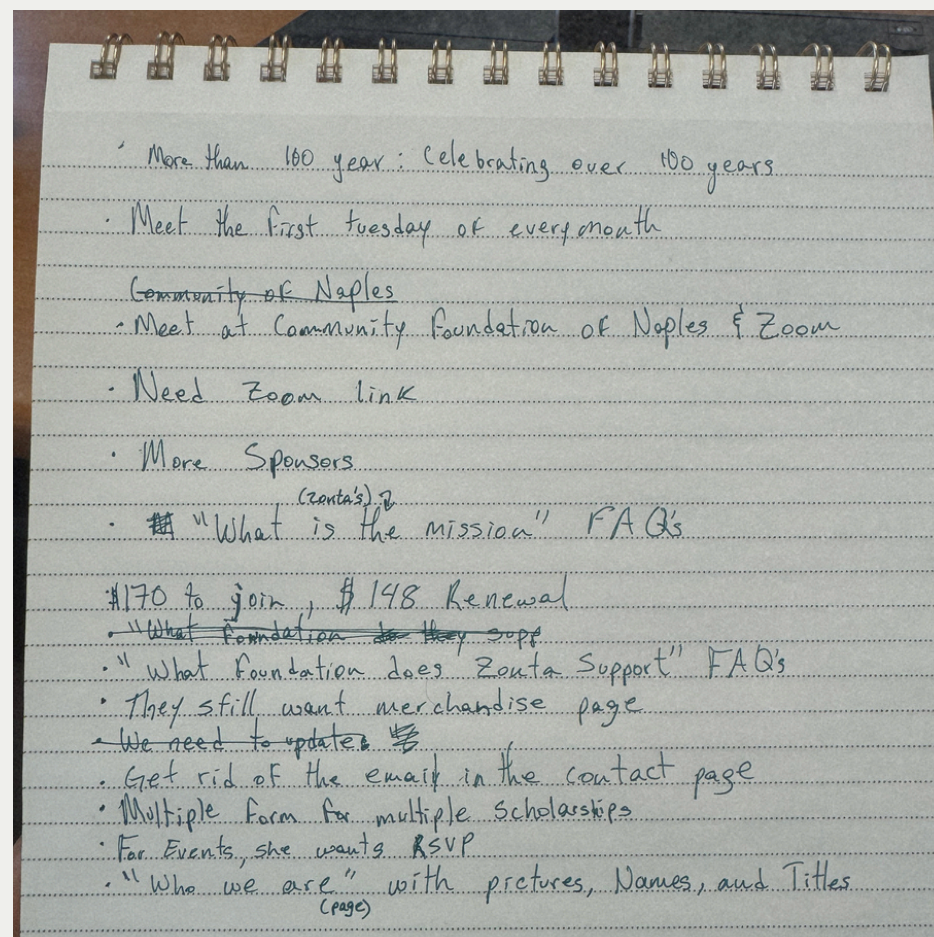 · More than 100 year: Celebrating over 100 years
· Meet the first tuesday of every month
Community of Naples
· Meet at Community Foundation of Naples & Zoom
· Need Zoom link
· More Sponsors
(Zonta's)
· "What is the mission" FAQ's
$170 to join, $148 Renewal
· "What foundation do they supp
· "What foundation does Zonta Support" FAQ's
· They still want merchandise page
· We need to update
· Get rid of the email in the contact page
· Multiple form for multiple Scholarships
· For Events, she wants RSVP
· "Who we are" with pictures, Names, and Titles
(page)